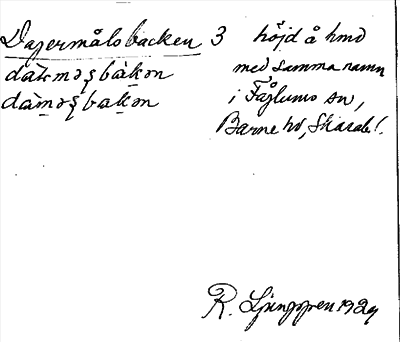 Dagermålsbacken 3 höjd å hmd
dàɹməʂbàkən med samma namn
dàməʂbakən i Fåglums sn,
Barne hd, Skarab l.
R. Ljunggren 1929